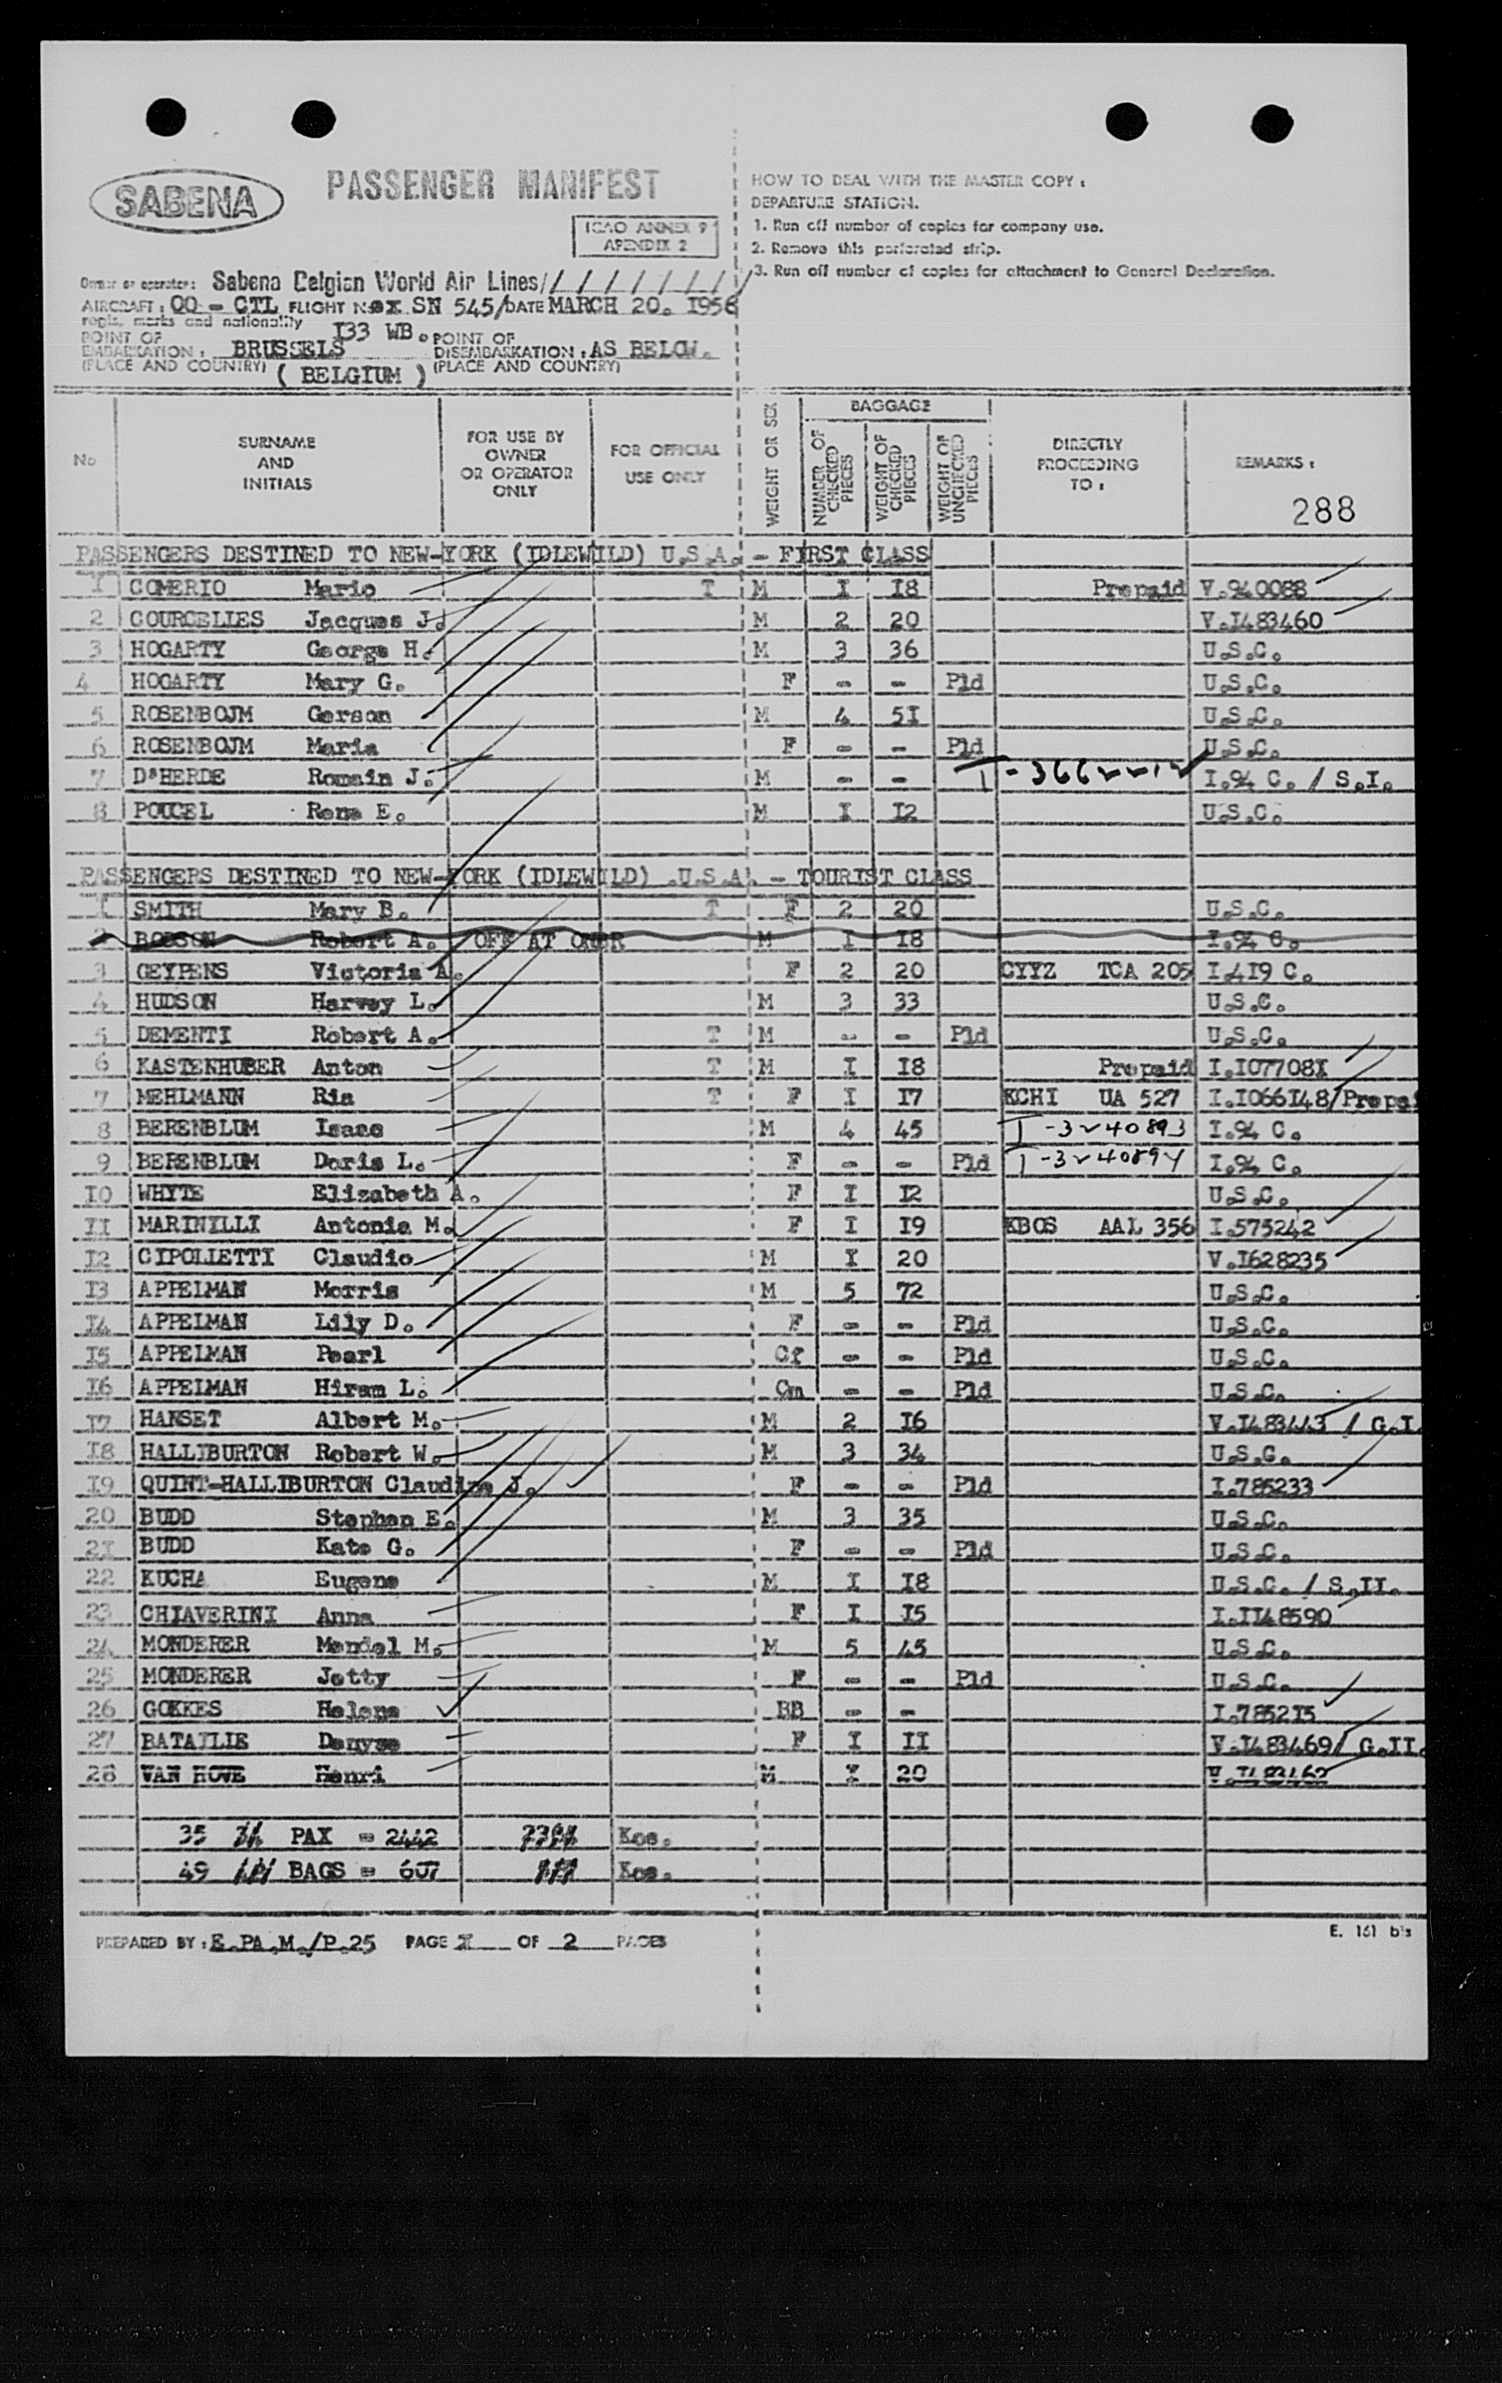 SABENA
PASSENGER MANIFEST
ICAO ANNEX 9
APENDIX 2
HOW TO DEAL WITH THE MASTER COPY :
DEPARTURE STATION.
1. Run off number of copies for company use.
2. Remove this perforated strip.
3. Run off number of copies for attachment to General Declaration.
Owner or operator: Sabena Belgian World Air Lines/////////
AIRCRAFT : OO - CTL FLIGHT No SN 545/DATE MARCH 20. I956
regis. marks and nationality I33 WB.
POINT OF EMBARKATION : BRUSSELS
(PLACE AND COUNTRY) ( BELGIUM )
POINT OF DISEMBARKATION : AS BELOW.
(PLACE AND COUNTRY)
No
SURNAME AND INITIALS
FOR USE BY OWNER OR OPERATOR ONLY
FOR OFFICIAL USE ONLY
WEIGHT OR SEX
BAGGAGE
NUMBER OF CHECKED PIECES
WEIGHT OF CHECKED PIECES
WEIGHT OF UNCHECKED PIECES
DIRECTLY PROCEEDING TO :
REMARKS :
288
PASSENGERS DESTINED TO NEW-YORK (IDLEWILD) U.S.A. - FIRST CLASS
I COMERIO Mario T M I I8 Prepaid V.940088
2 COURCELLES Jacques J. M 2 20 V.I483460
3 HOGARTY George H. M 3 36 U.S.C.
4 HOGARTY Mary G. F - - Pld U.S.C.
5 ROSENBOJM Gerson M 4 5I U.S.C.
6 ROSENBOJM Maria F - - Pld U.S.C.
7 D'HERDE Romain J. M - - I.94 C. / S.I.
8 POUCEL Rene E. M I I2 U.S.C.
PASSENGERS DESTINED TO NEW-YORK (IDLEWILD) U.S.A. - TOURIST CLASS
I SMITH Mary B. T F 2 20 U.S.C.
2 ROBSON Robert A. OFF AT M I I8 I.94 C.
3 GEYPENS Victoria A. F 2 20 CYYZ TCA 205 I.4I9 C.
4 HUDSON Harvey L. M 3 33 U.S.C.
5 DEMENTI Robert A. T M - - Pld U.S.C.
6 KASTENHUBER Anton T M I I8 Prepaid I.I07708I
7 MEHLMANN Ria T F I I7 KCHI UA 527 I.I066I48/Prepai
8 BERENBLUM Isaac M 4 45 I-3240893 I.94 C.
9 BERENBLUM Doris L. F - - Pld I-3240894 I.94 C.
I0 WHYTE Elizabeth A. F I I2 U.S.C.
II MARINILLI Antonia M. F I I9 KBOS AAL 356 I.575242
I2 CIPOLLETTI Claudio M I 20 V.I628235
I3 APPELMAN Morris M 5 72 U.S.C.
I4 APPELMAN Lily D. F - - Pld U.S.C.
I5 APPELMAN Pearl Cf - - Pld U.S.C.
I6 APPELMAN Hiram L. Cm - - Pld U.S.C.
I7 HANSET Albert M. M 2 I6 V.I483443 / G.I.
I8 HALLIBURTON Robert W. M 3 34 U.S.C.
I9 QUINT-HALLIBURTON Claudine J. F - - Pld I.785233
20 BUDD Stephen E. M 3 35 U.S.C.
2I BUDD Kate G. F - - Pld U.S.C.
22 KUCHA Eugene M I I8 U.S.C. / S.II.
23 CHIAVERINI Anna F I I5 I.II48590
24 MONDERER Mendel M. M 5 45 U.S.C.
25 MONDERER Jetty F - - Pld U.S.C.
26 GOKKES Helena BB - - I.7852I5
27 BATAILLE Denyse F I II V.I483469/ G.II.
28 VAN HOVE Henri M I 20
35 PAX = 2442 Kos.
49 BAGS = 607 Kos.
PREPARED BY : E.PA.M./P.25 PAGE I OF 2 PAGES
E. 161 bis